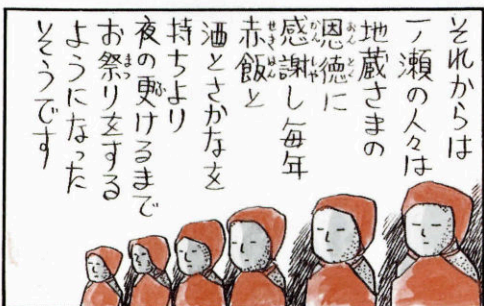 それからは
一ノ瀬の人々は
地蔵さまの
恩徳に
感謝し毎年
赤飯と
酒とさかなを
持ちより
夜の更けるまで
お祭りをする
ようになった
そうです
おんとく
かんしゃ
せきはん
ふ
まつ